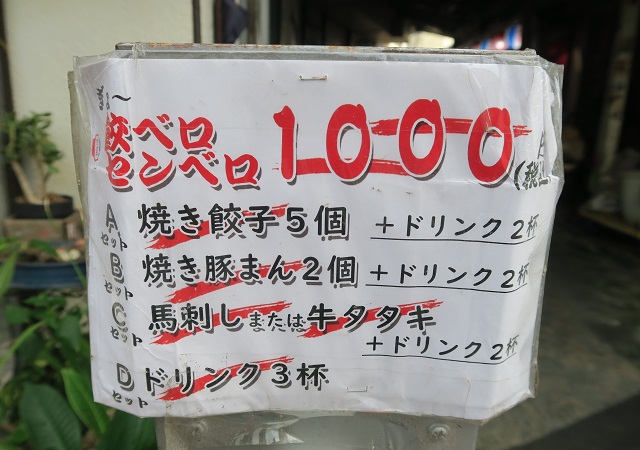 餃ベロ
センベロ 1000
Aセット 焼き餃子5個 +ドリンク2杯
Bセット 焼き豚まん2個 +ドリンク2杯
Cセット 馬刺しまたは牛タタキ
+ドリンク2杯
Dセット ドリンク3杯